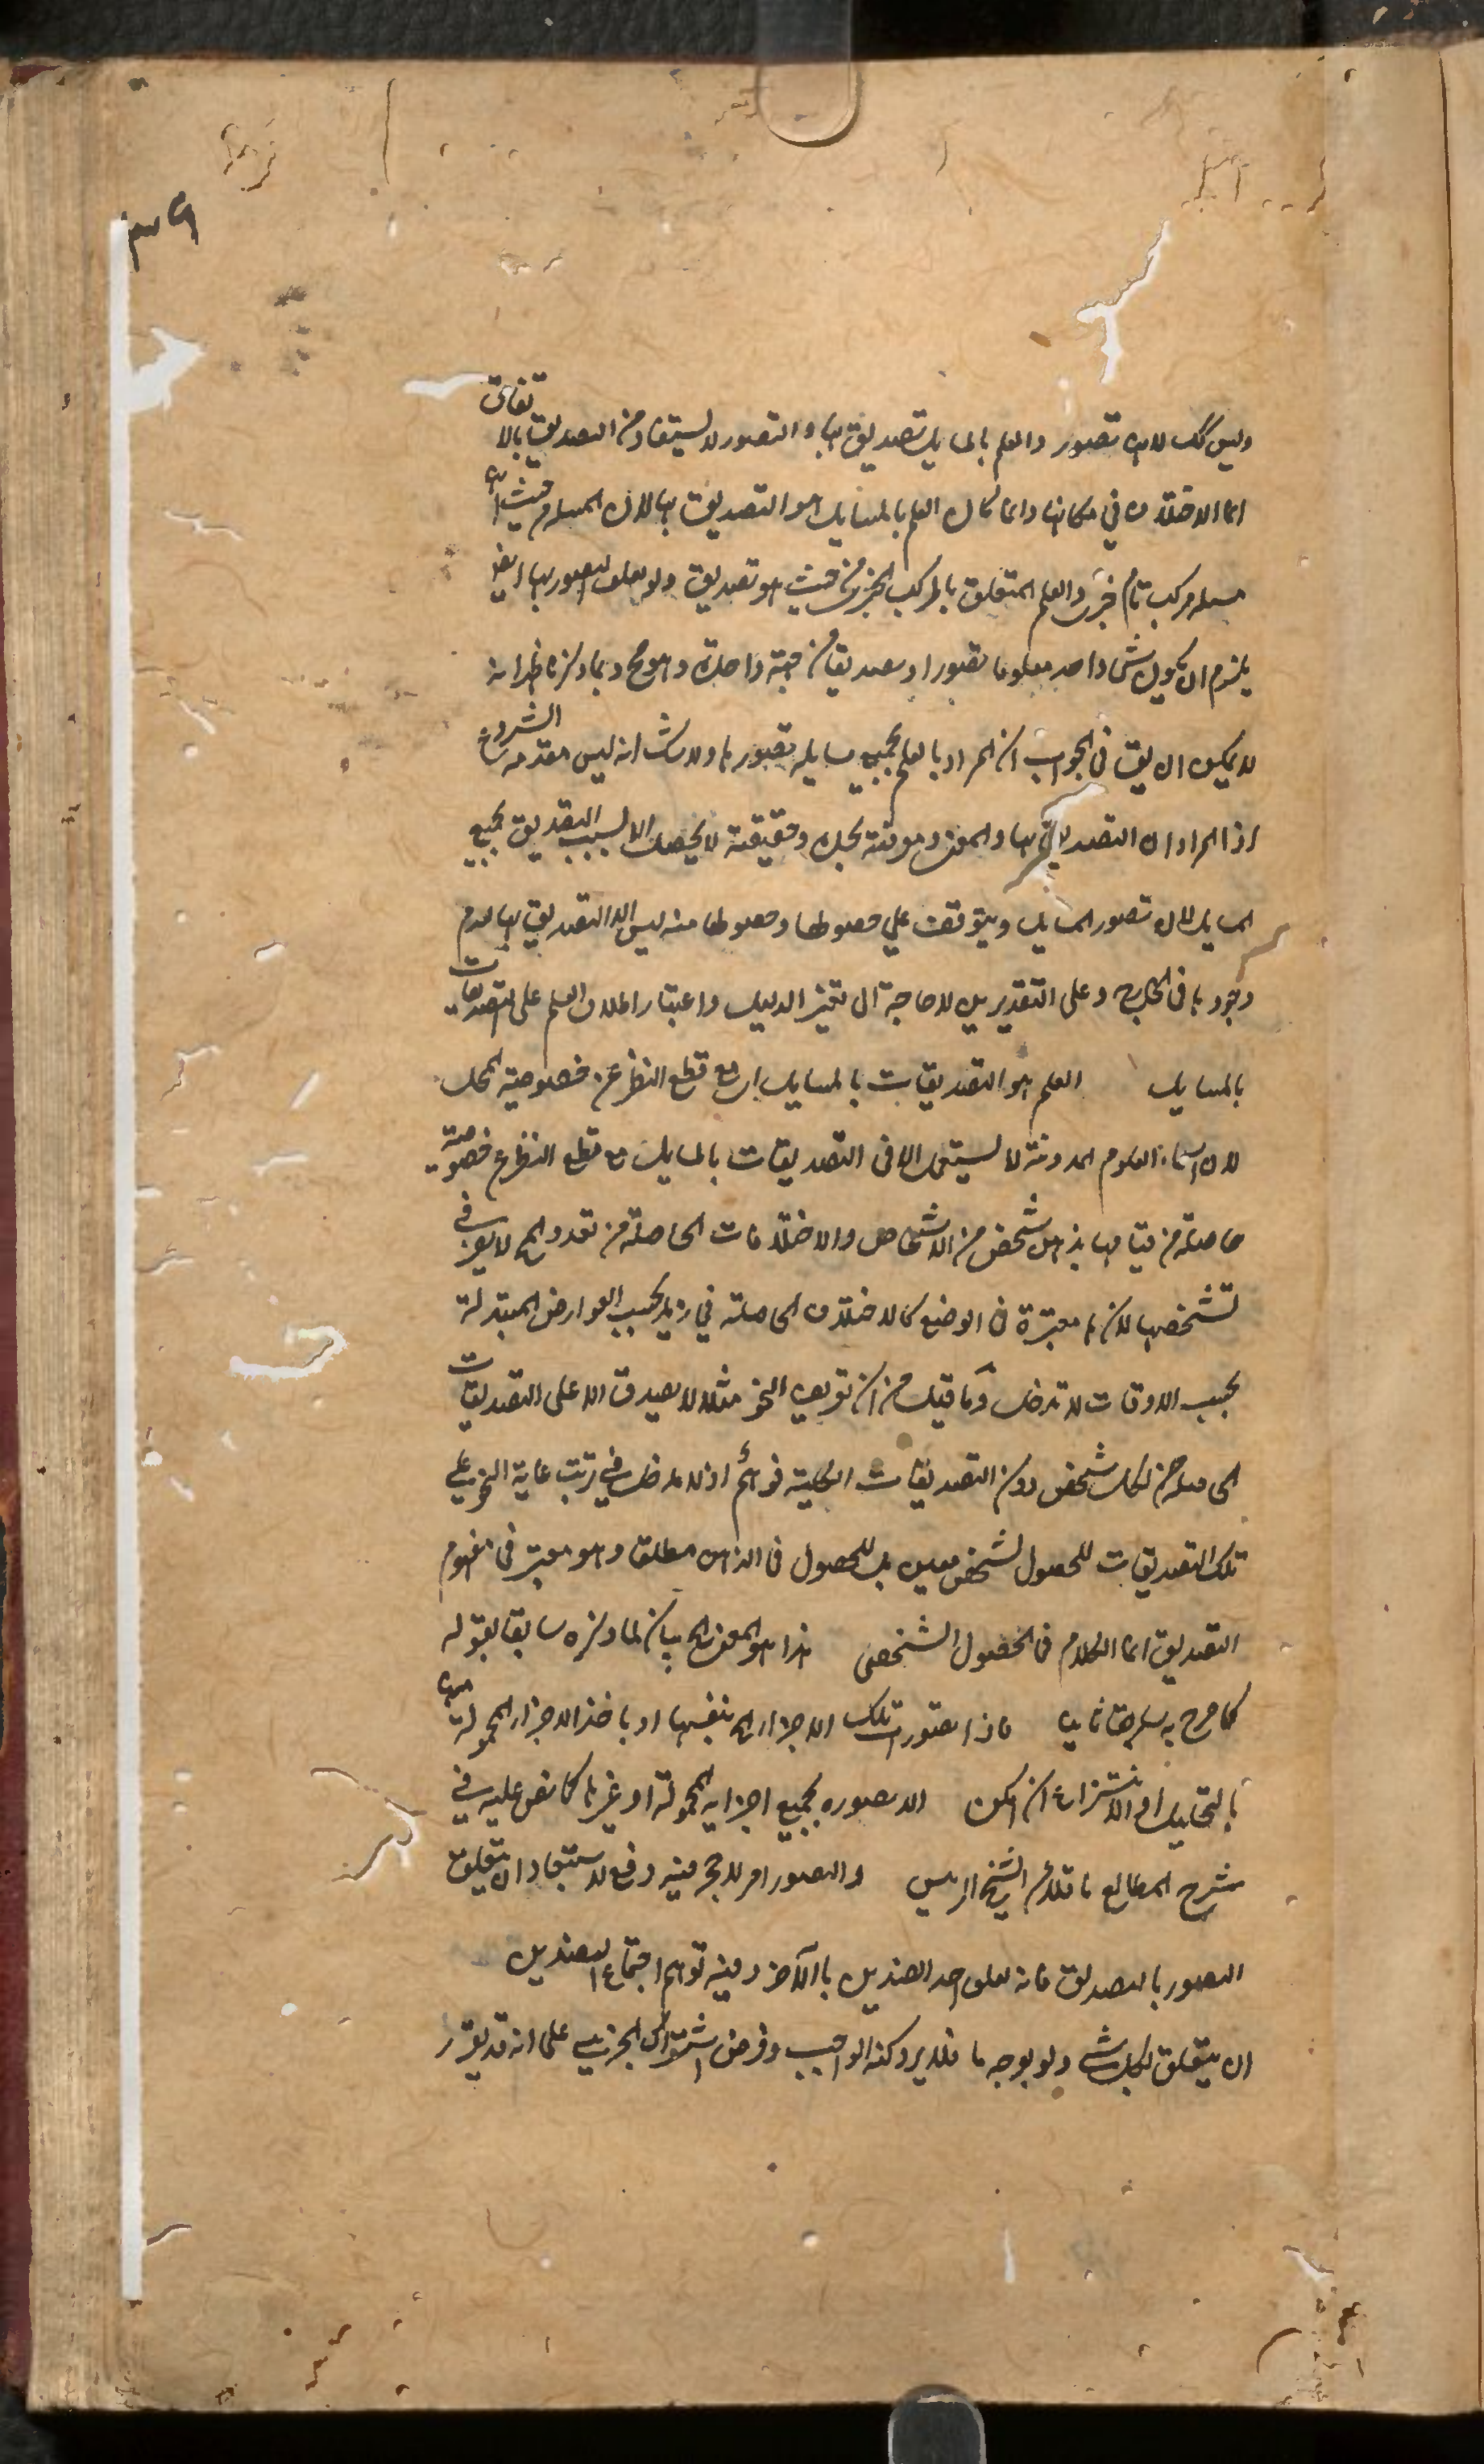 وليس كك لانه تصور والعلم بالمسايل تصديق بها والتصور لا يستفاد من التصديق بالاتفاق
انما الاختلاف في مكانها وانما كان العلم بالمسايل هو التصديق بها لان المسئلة من حيث انها
مسئلة مركب تام خبرى والعلم المتعلق بالمركب الخبرى من حيث هو تصديق ولو تعلق التصور بها ايضا
يلزم ان يكون شى واحد معلوما تصورا وتصديقا من جهة واحدة وهو مح وبما ذكرنا ظهر انه
لا يمكن ان يق فى الجواب ان المراد بالعلم بجميع مسايله تصورها ولا شك انه ليس مقدمة الشروع
اذ المراد ان التصديق بها والمعنى ومعرفته بحده وحقيقته لا يحصل الا بسبب التصديق بجميع
المسايل لان تصور المسايل ويتوقف على حصولها وحصولها منه ليس الا التصديق بها لعدم
وجودها فى الخارج وعلى التقديرين لا حاجة الى تغيير الدليل واعتبار اطلاق العلم على التصديقات
بالمسايل العلم هو التصديقات بالمسايل اى مع قطع النظر عن خصوصية المحل
لان اسماء العلوم المدونة لا يستعمل الا فى التصديقات بالمسايل مع قطع النظر عن خصوصية
حاصلة من قيامها بذهن شخص من الاشخاص والاختلافات الحاصلة من تعدد المحل لا يعرف في
تشخصها لانها معتبرة فى الوضع كالاختلاف الحاصلة في زيد بحسب العوارض المتبدلة
بحسب الاوقات لا تدخل وما قيل من ان تعريف النحو مثلا لا يصدق الا على التصديقات
الحاصلة لكل شخص دون التصديقات الكلية فوهم اذ لا مدخل في ترتب غاية النحو على
تلك التصديقات للحصول لشخص معين بل للحصول فى الذهن مطلقا وهو معتبر فى مفهوم
التصديق انما الكلام فى الحصول الشخصى هذا هو المعنى بيان لما ذكره سابقا بقوله
كما صرح به فاذا تصورت تلك الاجزاء بانفسها او باخذ الاجزاء المحمولة منها
بالتحليل او الانتزاع ان امكن الا تصوره بجميع اجزايه المحمولة او غيرها كما نص عليه في
شرح المطالع ناقلا عن الشيخ الرئيس والتصور امر لا حجر فيه دفع لاستبعاد ان يتعلق
التصور بالتصديق فانه تعلق احد الضدين بالآخر وفيه توهم اجتماع الضدين
ان يتعلق بكل شى ولو بوجه ما فلا يرد كنه الواجب وفرض اشتراك الجزئي على انه قد يقرر